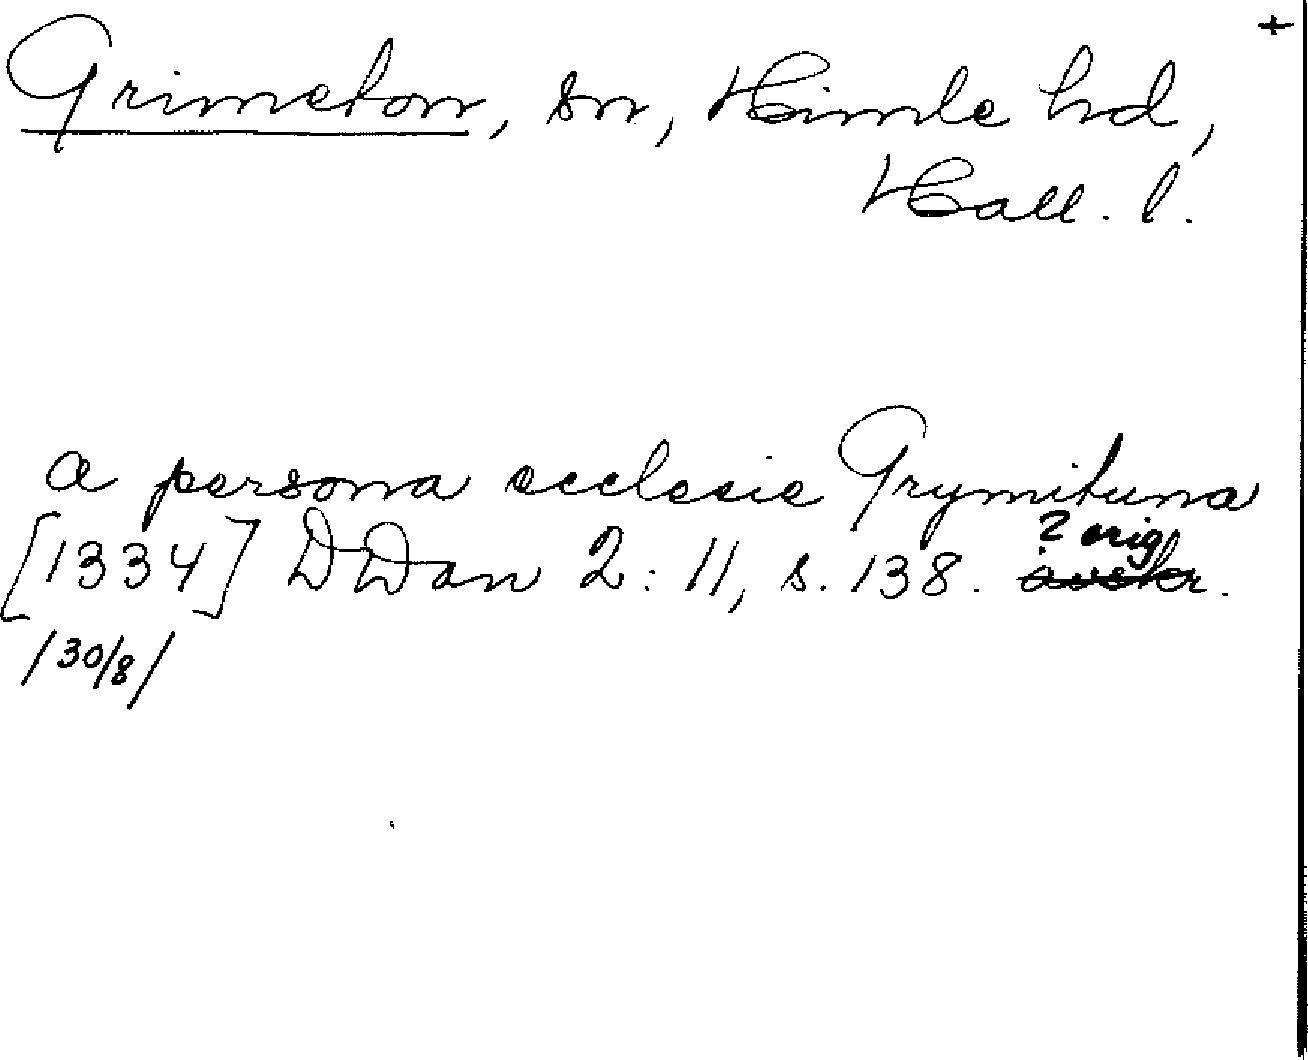 +
Grimeton, sn, Himle hd,
Hall. l.
a persona ecclesie Grymituna
? orig
[1334] DDan 2:11, s. 138. avskr.
/30/8/